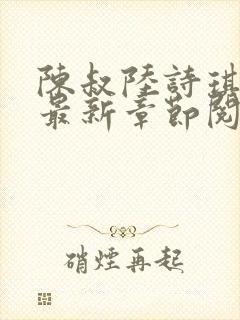 陳叔陸詩琪
最新章節閱
硝煙再起